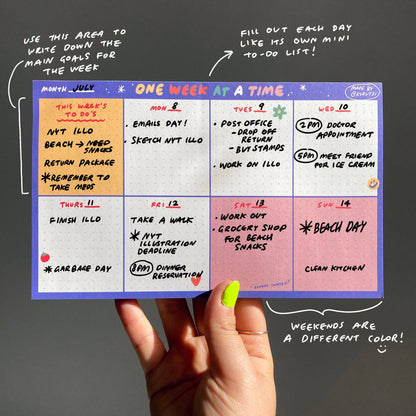 USE THIS AREA TO
WRITE DOWN THE
MAIN GOALS FOR
THE WEEK
FILL OUT EACH DAY
LIKE ITS OWN MINI
TO-DO LIST!
MONTH JULY
ONE WEEK AT A TIME
MADE BY
THIS WEEK'S
TO DO'S
NYT ILLO
BEACH → NEED
SNACKS
RETURN PACKAGE
*REMEMBER TO
TAKE MEDS
MON 8
• EMAILS DAY!
• SKETCH NYT ILLO
TUES 9
• POST OFFICE
- DROP OFF
RETURN
- BUY STAMPS
• WORK ON ILLO
WED 10
2PM DOCTOR
APPOINTMENT
6PM MEET FRIEND
FOR ICE CREAM
THURS 11
FINISH ILLO
* GARBAGE DAY
FRI 12
TAKE A WALK
* NYT
ILLUSTRATION
DEADLINE
8PM DINNER
RESERVATION
SAT 13
• WORK OUT
• GROCERY SHOP
FOR BEACH
SNACKS
SUN 14
* BEACH DAY
CLEAN KITCHEN
WEEKENDS ARE
A DIFFERENT COLOR!